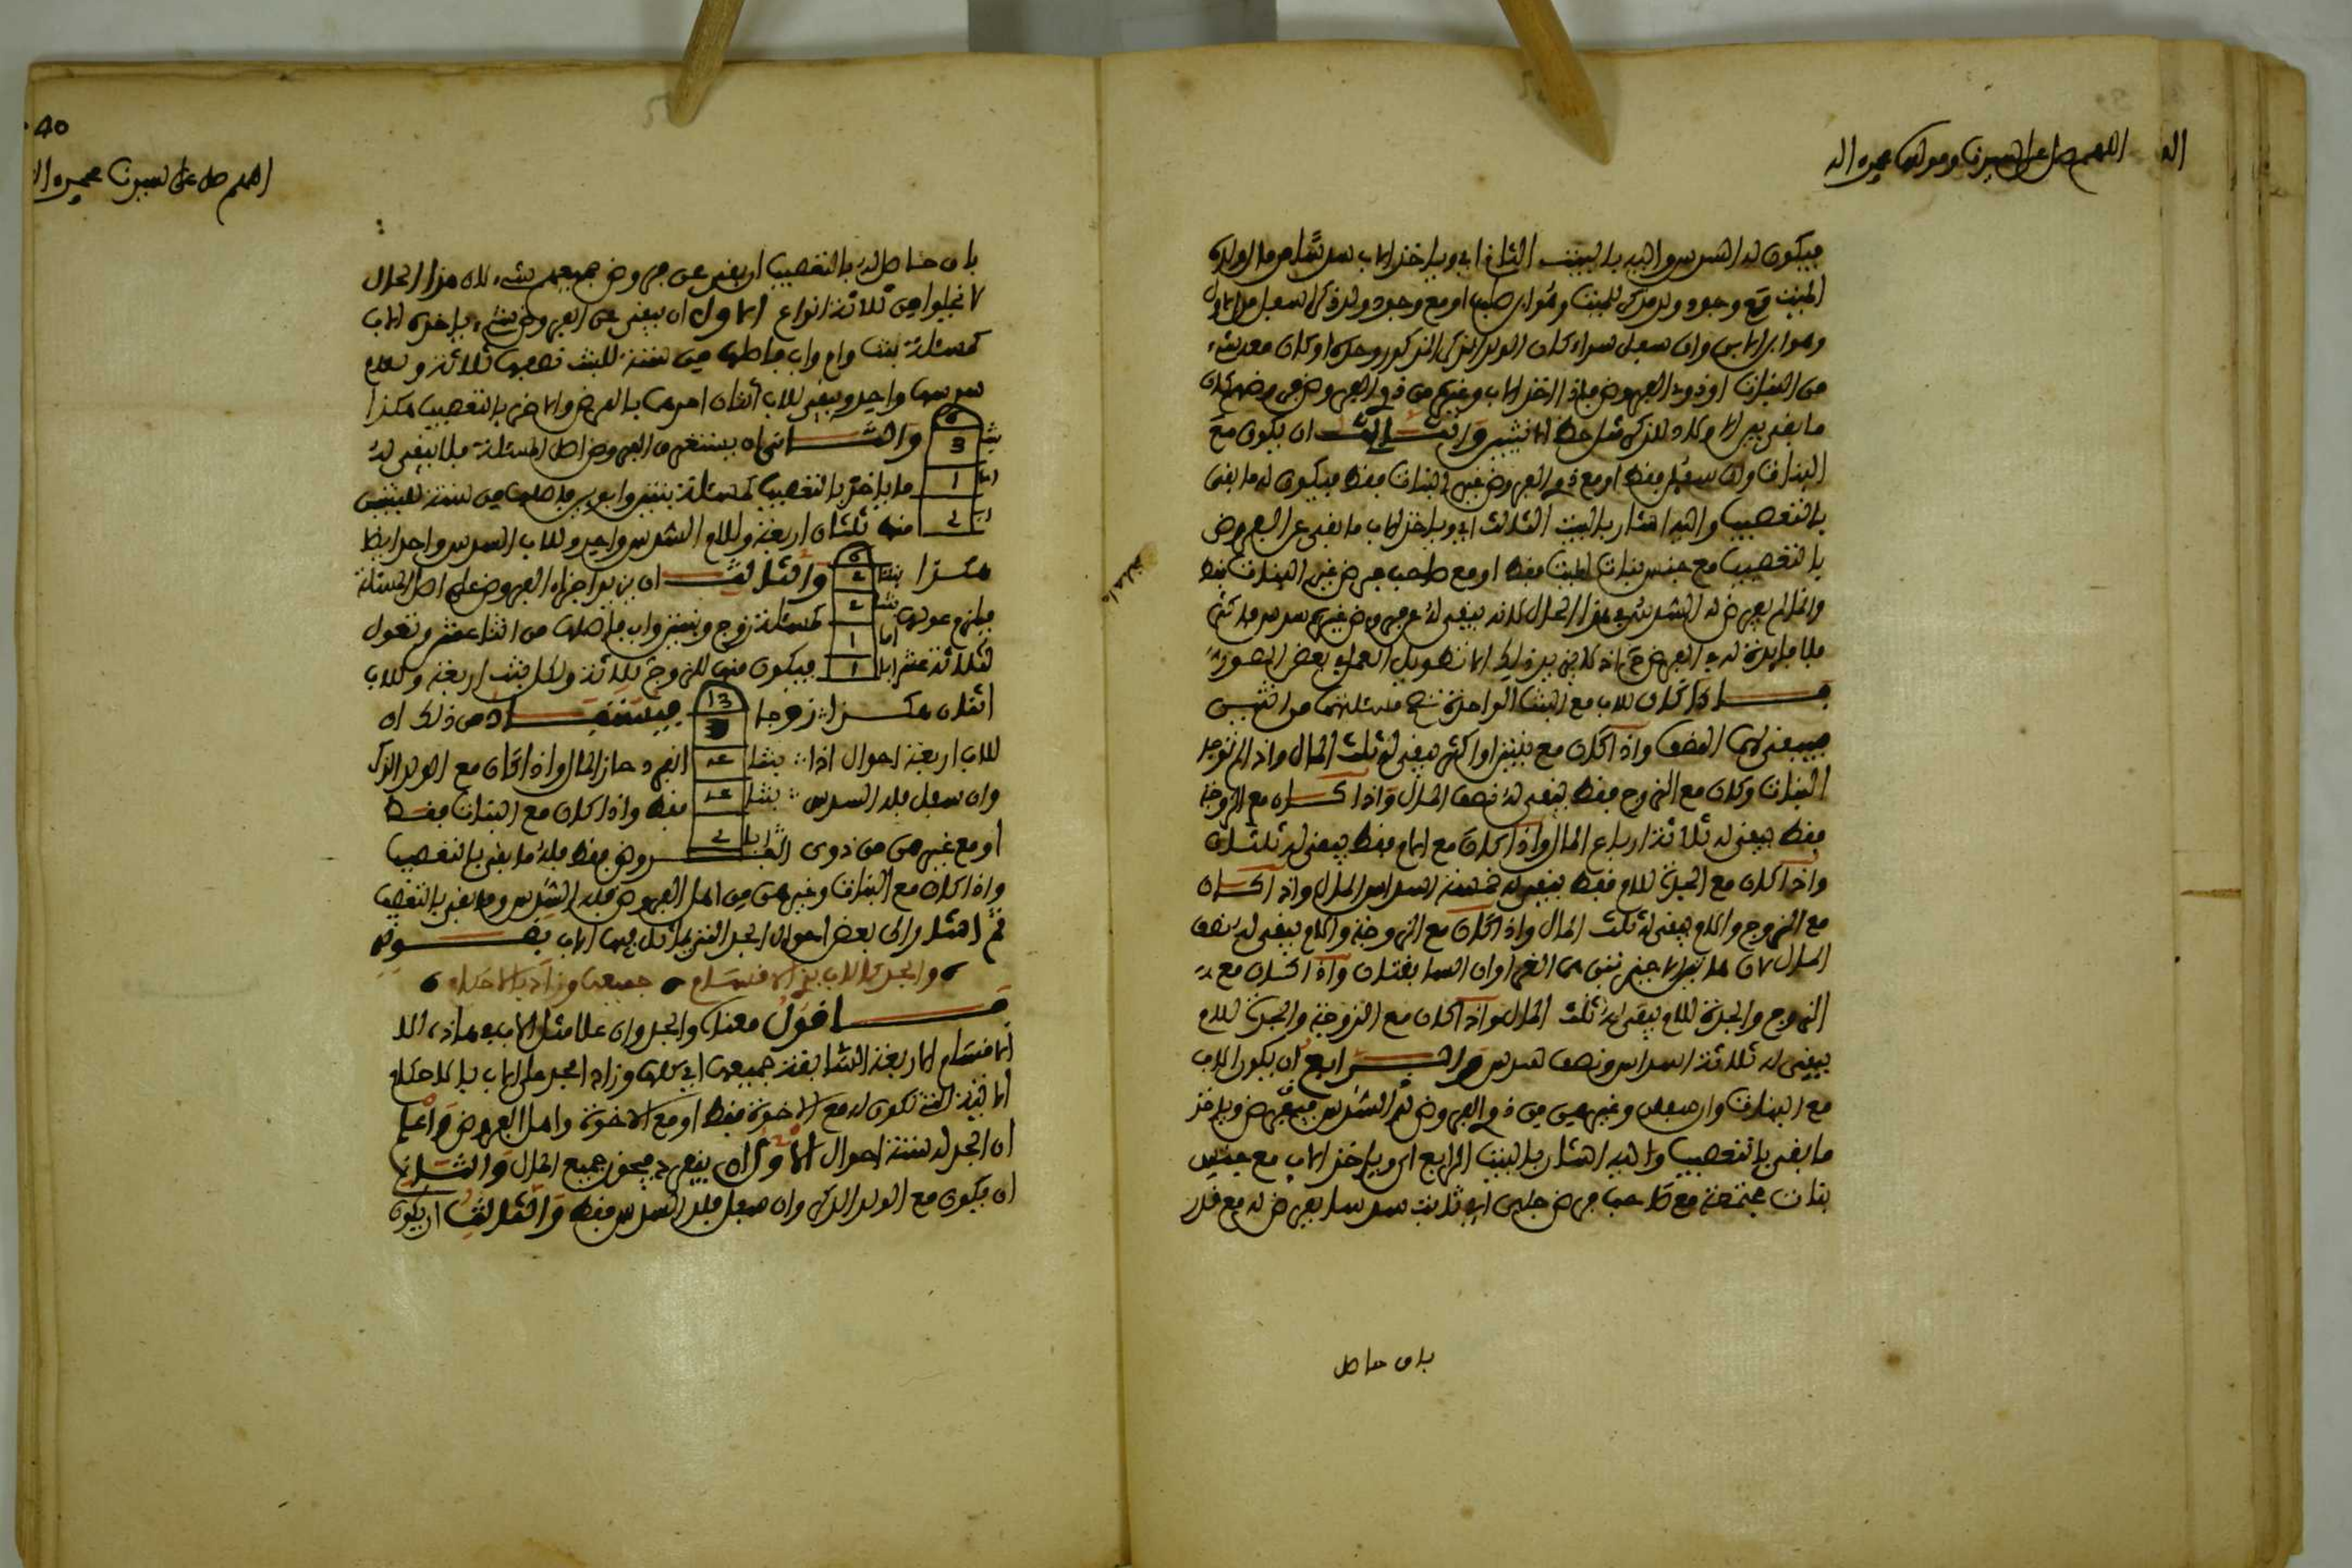 اللهم صل على سيدنا ومولانا محمد واله
فيكون له السدس واليه بالبيت الثاني اي وياخذ الاب سدسا من مال ولده
الميت مع وجود ولد ذكر للميت وهو ابن صلبه او مع وجود ولد ذكر اسفل من الاول
وهو ابن الابن وان سفل سواء كان الولد الذكر المذكور وحده او كان معه شيء
من البنات او ذوي الفروض فاذا اخذ الاب وغيره من ذوي الفروض فروضهم كان
ما بقي بين الاولاد للذكر مثل حظ الانثيين والثالث ان يكون مع
البنات وان سفلن فقط او مع ذوي الفروض غير البنات فقط فيكون له ما بقي
بالتعصيب واليه اشار بالبيت الثالث اي وياخذ الاب ما بقي عن الفروض
بالتعصيب مع جنس بنات الميت فقط او مع صاحب فرض غير البنات فقط
وانما لم يفرض له السدس في هذا الحال لانه يبقى له عن فروض غيره سدس فاكثر
فلا فايدة له في الفرض اذ لا يزيد ذلك الا تطويل العمل في بعض الصور
فاذا كان للاب مع البنت الواحدة تصح مسئلتهما من اثنين
فيبقى له النصف واذا كان مع بنتين او اكثر يبقى له ثلث المال واذا لم توجد
البنات وكان مع الزوج فقط يبقى له نصف المال واذا كان مع الزوجة
فقط يبقى له ثلاثة ارباع المال واذا كان مع الام فقط يبقى له ثلثان
واذا كان مع الجدة للام فقط يبقى له خمسة اسداس المال واذا كان
مع الزوج والام يبقى له ثلث المال واذا كان مع الزوجة والام يبقى له نصف
المال لان هاتين الاخيرتين هما الغراوان السابقتان واذا كان مع
الزوج والجدة للام يبقى له ثلث المال واذا كان مع الزوجة والجدة للام
يبقى له ثلاثة اسداس ونصف سدس والرابع ان يكون الاب
مع البنات وان سفلن وغيرهن من ذوي الفروض له السدس فيفرض وياخذ
ما بقي بالتعصيب واليه اشار بالبيت الرابع اي وياخذ الاب مع جنس
بنات مجتمعة مع صاحب فرض جلي اي ثابت سدسا يفرض له مع قدر
باق حاصل
40
اللهم صل على سيدنا محمد واله
باق حاصل له بالتعصيب ان بقي عن فروض جميعهم شيء لان هذا الحال
لا يخلو من ثلاثة انواع الاول ان يبقى عن الفروض شيء ياخذه الاب
كمسئلة بنت وام واب فاصلها من ستة للبنت نصفها ثلاثة وللام
سدسها واحد ويبقى للاب اثنان احدهما بالفرض والاخر بالتعصيب هكذا
6
بنت 3
ام 1
اب 2
والثاني ان يستغرق الفروض اصل المسئلة فلا يبقى له
ما ياخذ بالتعصيب كمسئلة بنتين وابوين فاصلها من ستة للبنتين
منه ثلثان اربعة وللام السدس واحد وللاب السدس واحد ايضا
هكذا
6
بنت 2
بنت 2
ام 1
اب 1
والثالث ان يزيد اجزاء الفروض على اصل المسئلة
فيلزم عولها كمسئلة زوج وبنتين واب فاصلها من اثنا عشر وتعول
لثلاثة عشر فيكون منها للزوج ثلاثة ولكل بنت اربعة وللاب
اثنان هكذا
13
زوج 3
بنت 4
بنت 4
اب 2
فيستفاد من ذلك ان
للاب اربعة احوال اذا انفرد حاز المال واذا كان مع الولد الذكر
وان سفل فله السدس فقط واذا كان مع البنات فقط
او مع غيرهن من ذوي الفروض فقط فله ما بقي بالتعصيب
واذا كان مع البنات وغيرهن من اهل الفروض فله السدس وما بقي بالتعصيب
ثم اشار الى بعض احوال الجد التي يماثل فيها الاب بقوله
والجد كالاب بذي الاقسام جميعها وزاد بالاحكام
اقول معناه والجد وان علا مثل الاب في هاذه
الاقسام الاربعة السابقة جميعها اي كلها وزاد الجد على الاب بالاحكام
الاتية التي تكون له مع الاخوة فقط او مع الاخوة واهل الفروض واعلم
ان الجد له ستة احوال الاول ان ينفرد فيحوز جميع المال والثاني
ان يكون مع الولد الذكر وان سفل فله السدس فقط والثالث ان يكون